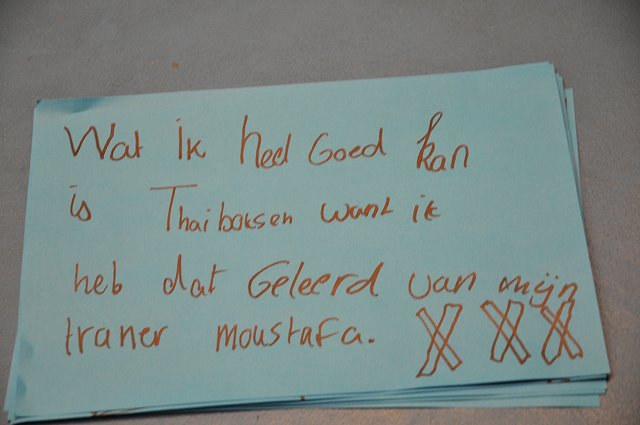 Wat ik heel Goed kan
is Thaiboksen want ik
heb dat Geleerd van mijn
traner moustafa. XXX